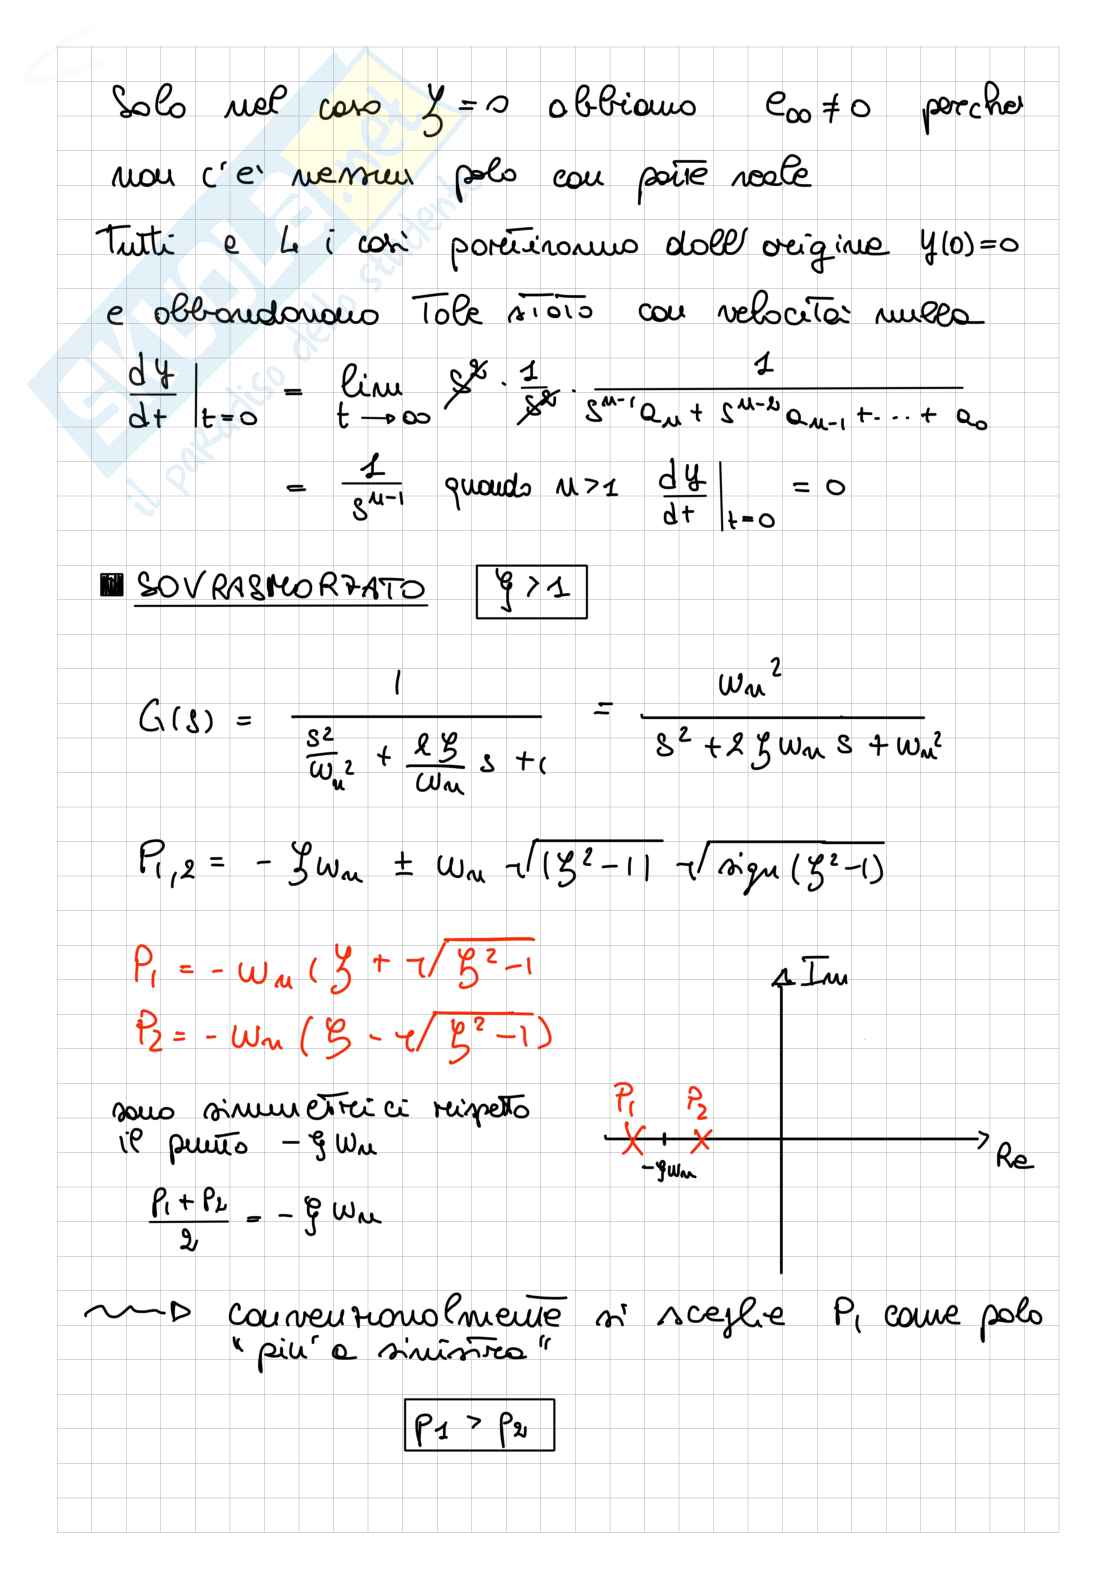 Solo nel caso ξ = 0 abbiamo e∞ ≠ 0 perche'
non c'e' nessun polo con parte reale
Tutti e 4 i casi partiranno dall'origine y(0)=0
e abbandonano Tale stato con velocità nulla
dy/dt |t=0 = lim t→∞ s² · 1/s² · 1/(sⁿ⁻¹ aₙ + sⁿ⁻² aₙ₋₁ + ... + a₀)
= 1/sⁿ⁻¹ quando n>1 dy/dt |t=0 = 0
SOVRASMORZATO ξ > 1
G(s) = 1/(s²/ωₙ² + 2ξ/ωₙ s + 1) = ωₙ²/(s² + 2ξωₙ s + ωₙ²)
P1,2 = - ξωₙ ± ωₙ √(ξ²-1) √sign(ξ²-1)
P1 = - ωₙ (ξ + √ξ²-1
P2 = - ωₙ (ξ - √ξ²-1)
Im
sono simmetrici rispetto
il punto - ξωₙ
P1 P2
-ξωₙ
Re
(P1 + P2)/2 = - ξωₙ
convenzionalmente si sceglie P1 come polo
"piu' a sinistra"
P1 > P2
SKUOLA.net
il paradiso dello studente